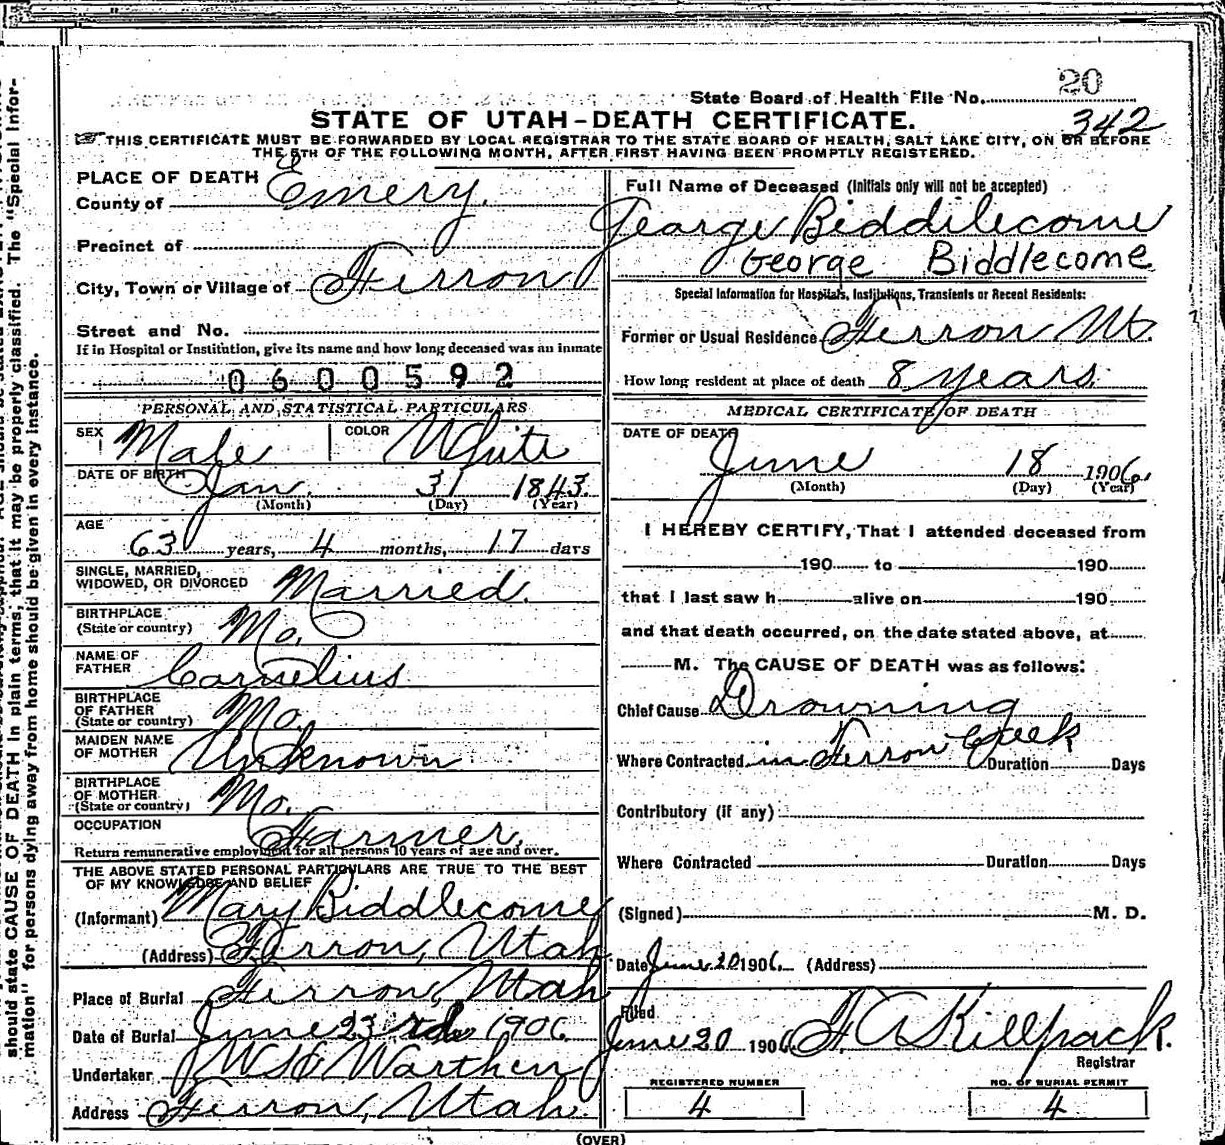 20
State Board of Health File No.
STATE OF UTAH-DEATH CERTIFICATE.
342
THIS CERTIFICATE MUST BE FORWARDED BY LOCAL REGISTRAR TO THE STATE BOARD OF HEALTH, SALT LAKE CITY, ON OR BEFORE
THE 5TH OF THE FOLLOWING MONTH, AFTER FIRST HAVING BEEN PROMPTLY REGISTERED.
PLACE OF DEATH
County of Emery.
Precinct of
City, Town or Village of Ferron
Street and No.
If in Hospital or Institution, give its name and how long deceased was an inmate
0600592
PERSONAL AND STATISTICAL PARTICULARS
SEX Male COLOR White
DATE OF BIRTH Jan. 31 1843.
(Month) (Day) (Year)
AGE
63 years, 4 months, 17 days
SINGLE, MARRIED,
WIDOWED, OR DIVORCED Married.
BIRTHPLACE
(State or country) Mo.
NAME OF
FATHER Cornelius
BIRTHPLACE
OF FATHER
(State or country) Mo.
MAIDEN NAME
OF MOTHER Unknown
BIRTHPLACE
OF MOTHER
(State or country) Mo.
OCCUPATION Farmer.
Return remunerative employment for all persons 10 years of age and over.
THE ABOVE STATED PERSONAL PARTICULARS ARE TRUE TO THE BEST
OF MY KNOWLEDGE AND BELIEF
(Informant) Mary Biddlecome
(Address) Ferron, Utah
Place of Burial Ferron, Utah
Date of Burial June 23 1906
Undertaker Warthen
Address Ferron, Utah.
Full Name of Deceased (Initials only will not be accepted)
George Biddilecome
George Biddlecome
Special Information for Hospitals, Institutions, Transients or Recent Residents:
Former or Usual Residence Ferron Ut.
How long resident at place of death 8 years.
MEDICAL CERTIFICATE OF DEATH
DATE OF DEATH
June 18 1906.
(Month) (Day) (Year)
I HEREBY CERTIFY, That I attended deceased from
190 to 190
that I last saw h alive on 190
and that death occurred, on the date stated above, at
M. The CAUSE OF DEATH was as follows:
Chief Cause Drowning
Where Contracted in Ferron Creek Duration Days
Contributory (if any)
Where Contracted Duration Days
(Signed) M. D.
Date June 20 1906 (Address)
Filed
June 20 1906 Killpack.
Registrar
REGISTERED NUMBER
4
NO. OF BURIAL PERMIT
4
(OVER)
should state CAUSE OF DEATH in plain terms, that it may be properly classified. The "Special Infor-
mation" for persons dying away from home should be given in every instance.